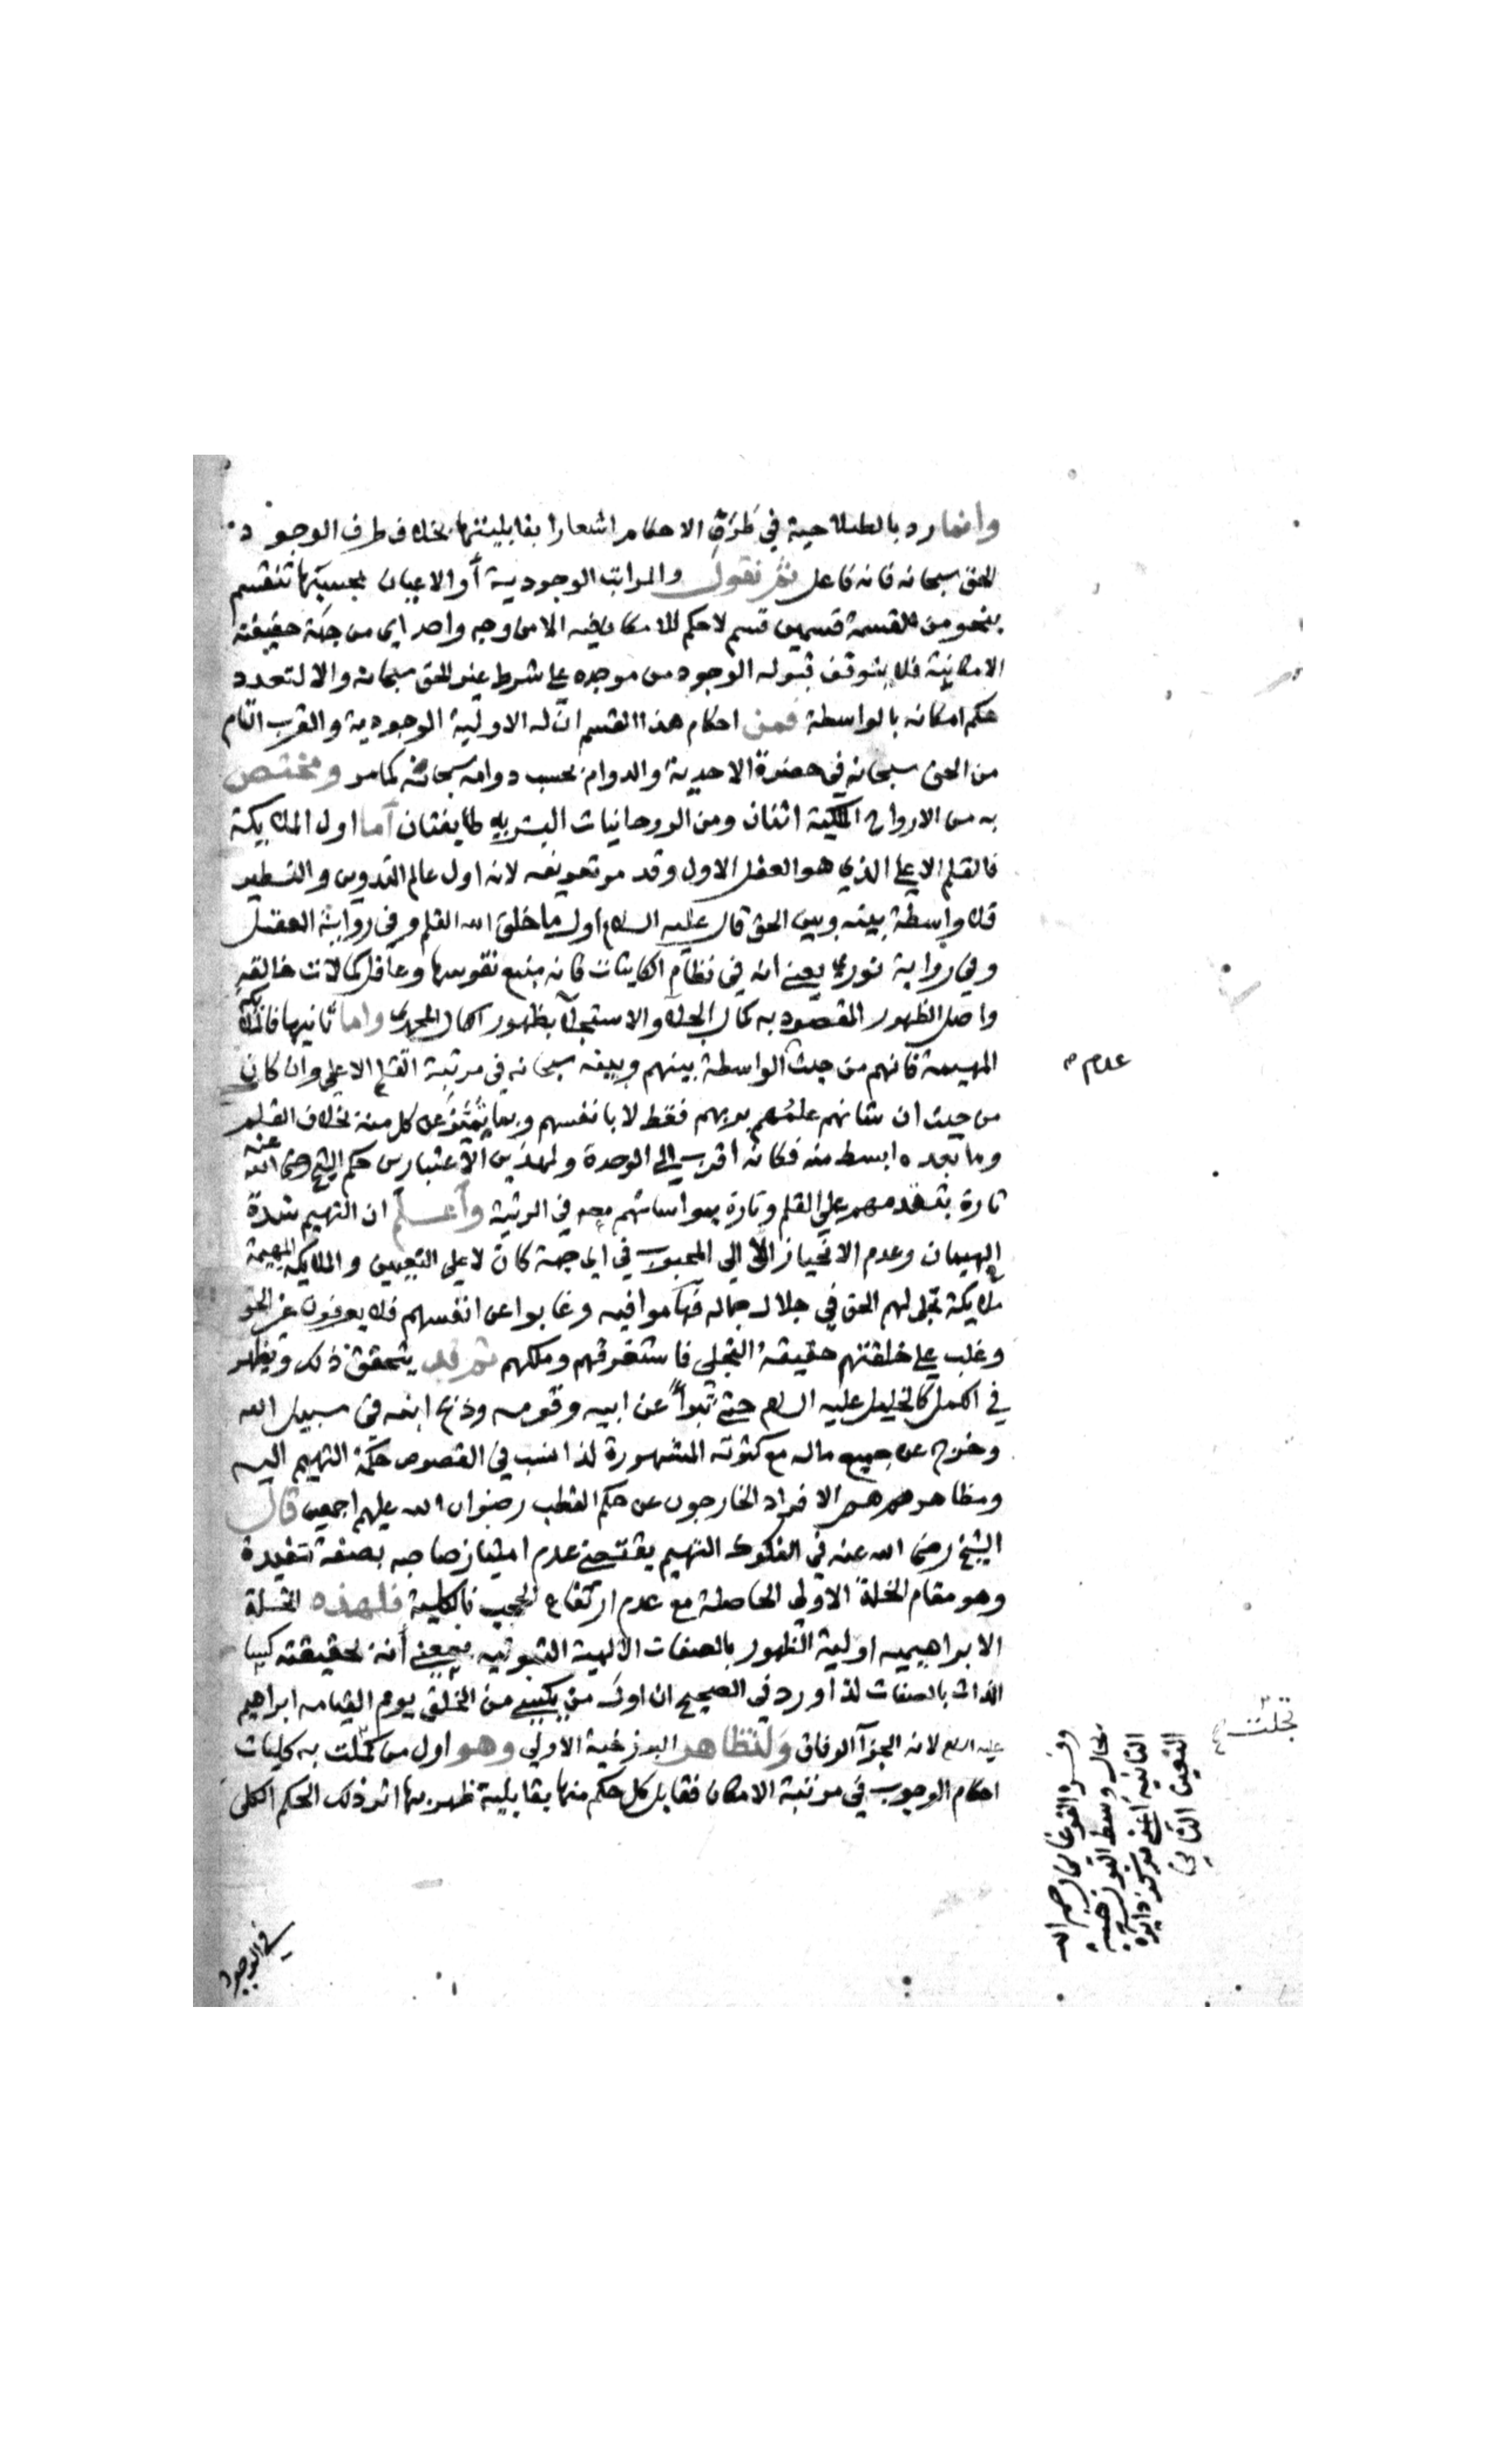 وانما رد بالصلاحية في طرف الاحكام اشعارا بقابليتها بخلاف طرف الوجود
للحق سبحانه فانه فاعل ثم نقول والمراتب الوجودية أو الاعيان بحسبها تنقسم
بنحو من القسمة قسمين قسم لا حكم للامكان فيه الا من وجه واحد اي من جهة حقيقته
الامكانية فلا يتوقف قبوله الوجود من موجده على شرط غير الحق سبحانه والا لتعدد
حكم امكانه بالواسطة فمن احكام هذا القسم ان له الاولية الوجودية والقرب التام
من الحق سبحانه في حضرة الاحدية والدوام بحسب دوامه سبحانه كما مر ومختص
به من الارواح الملكية اثنان ومن الروحانيات البشرية طايفتان أما اول الملايكة
فالقلم الاعلى الذي هو العقل الاول وقد مر تعريفه لانه اول عالم التدوين والتسطير
فلا واسطة بينه وبين الحق قال عليه السلام اول ما خلق الله القلم وفي رواية العقل
وفي رواية نوري يعني انه في نظام الكاينات فانه منبع نقوسها وعاقل كمالات خالقه
واصل الظهور المقصود به كمال الجلاء والاستجلاء بظهور الكمال المحمدي واما ثانيها فالملايكة
المهيمة فانهم من حيث الواسطة بينهم وبينه سبحانه في مرتبة القلم الاعلى وان كان
من حيث ان شانهم علمهم بربهم فقط لا بانفسهم وبما يتميز عن كل منه بخلاف القلم
وما بعده ابسط منه فكانه اقرب الى الوحدة ولهذين الاعتبارين حكم الشيخ رضي الله عنه
تارة بتقدمهم على القلم وتارة بمواساتهم معه في الرتبة وأعلم ان التهيم شدة
الهيمان وعدم الانحياز الا الى المحبوب في اي جهة كان لا على التعيين والملايكة المهيمة
ملايكة تجلى لهم الحق في جلال جماله فهاموا فيه وغابوا عن انفسهم فلا يعرفون غير الحق
وغلب على خلقتهم حقيقة التجلي فاستغرقهم وملكهم ثم قد يتحقق ذلك ويظهر
في الكمل كالخليل عليه السلام حتى تبرأ عن ابيه وقومه وذبح ابنه في سبيل الله
وخرج عن جميع ماله مع كثرته المشهورة لذا نسب في الفصوص حكمة التهيم اليه
ومظاهرهم هم الافراد الخارجون عن حكم القطب رضوان الله عليهم اجمعين قال
الشيخ رضي الله عنه في الفكوك التهيم يقتضي عدم امتياز صاحبه بصفة تقيده
وهو مقام الخلة الاولى الحاصلة مع عدم ارتفاع الحجب بالكلية فلهذه الخلة
الابراهيمية اولية الظهور بالصفات الالهية الثبوتية بمعنى أنه لحقيقته كسا
الذات بالصفات لذا ورد في الصحيح ان اول من يكسى من الخلق يوم القيامه ابراهيم
عليه السلام لانه الجزآ الوفاق ولتظاهر البرزخية الاولى وهو اول من كملت به كليات
احكام الوجوب في مرتبة الامكان فقابل كل حكم منها بقابلية ظهر بها اثر ذلك الحكم الكلي
في الوجود
عدم
تجلت
وفسر الفرغاني رحمه الله
بحال وسط البرزخية
الثانية اعني مركز دايرة
التعين الثاني